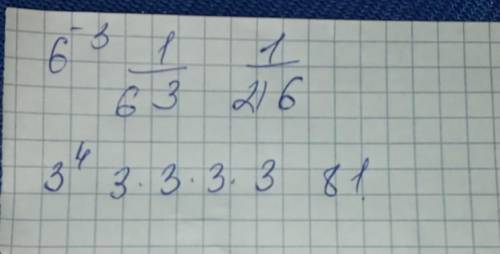 6⁻³ 1/6³ 1/216
3⁴ 3·3·3·3 81